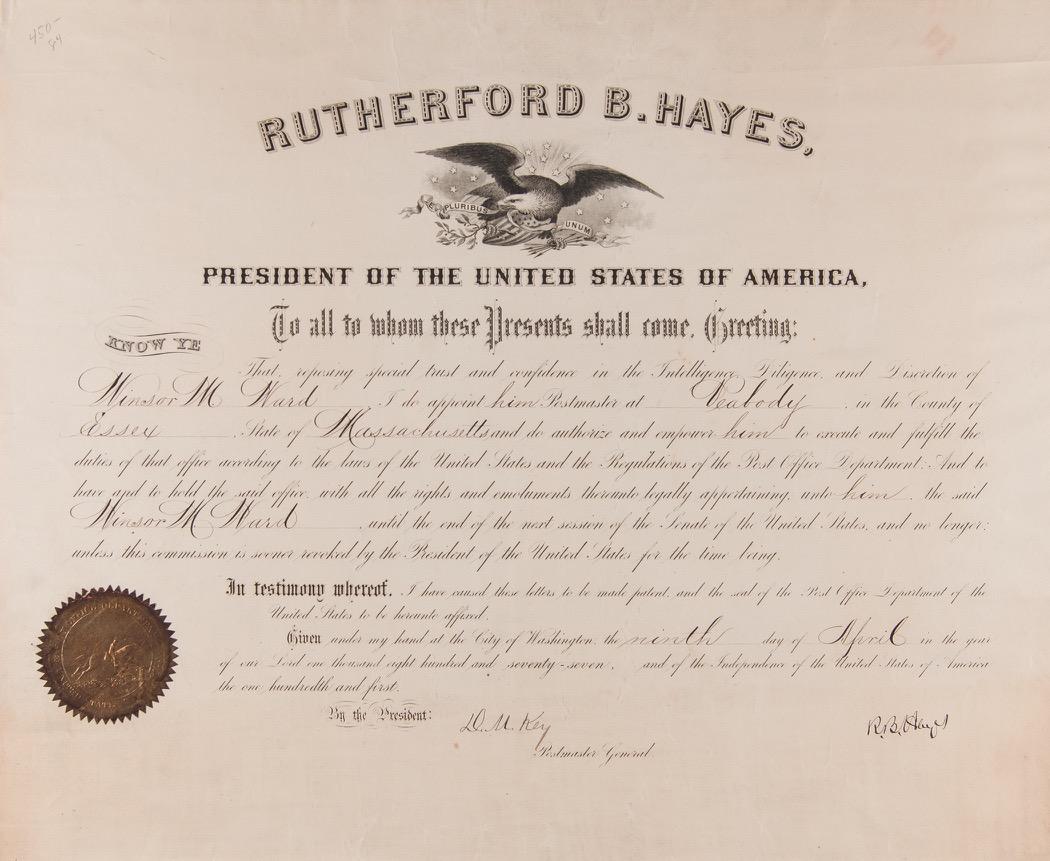 450-
84
RUTHERFORD B. HAYES,
E PLURIBUS UNUM
PRESIDENT OF THE UNITED STATES OF AMERICA,
To all to whom these Presents shall come, Greeting:
KNOW YE
That, reposing special trust and confidence in the Intelligence, Diligence, and Discretion of
Winsor M Ward, I do appoint him Postmaster at Peabody, in the County of
Essex, State of Massachusetts and do authorize and empower him to execute and fulfill the
duties of that office according to the laws of the United States and the Regulations of the Post Office Department: And to
have and to hold the said office, with all the rights and emoluments thereunto legally appertaining, unto him, the said
Winsor M Ward, until the end of the next session of the Senate of the United States, and no longer;
unless this commission is sooner revoked by the President of the United States for the time being.
In testimony whereof, I have caused these letters to be made patent, and the seal of the Post Office Department of the
United States to be hereunto affixed.
Given under my hand at the City of Washington, the ninth day of April, in the year
of our Lord one thousand eight hundred and seventy-seven, and of the Independence of the United States of America
the one hundredth and first.
By the President:
D. M. Key
R. B. Hayes
Postmaster General.